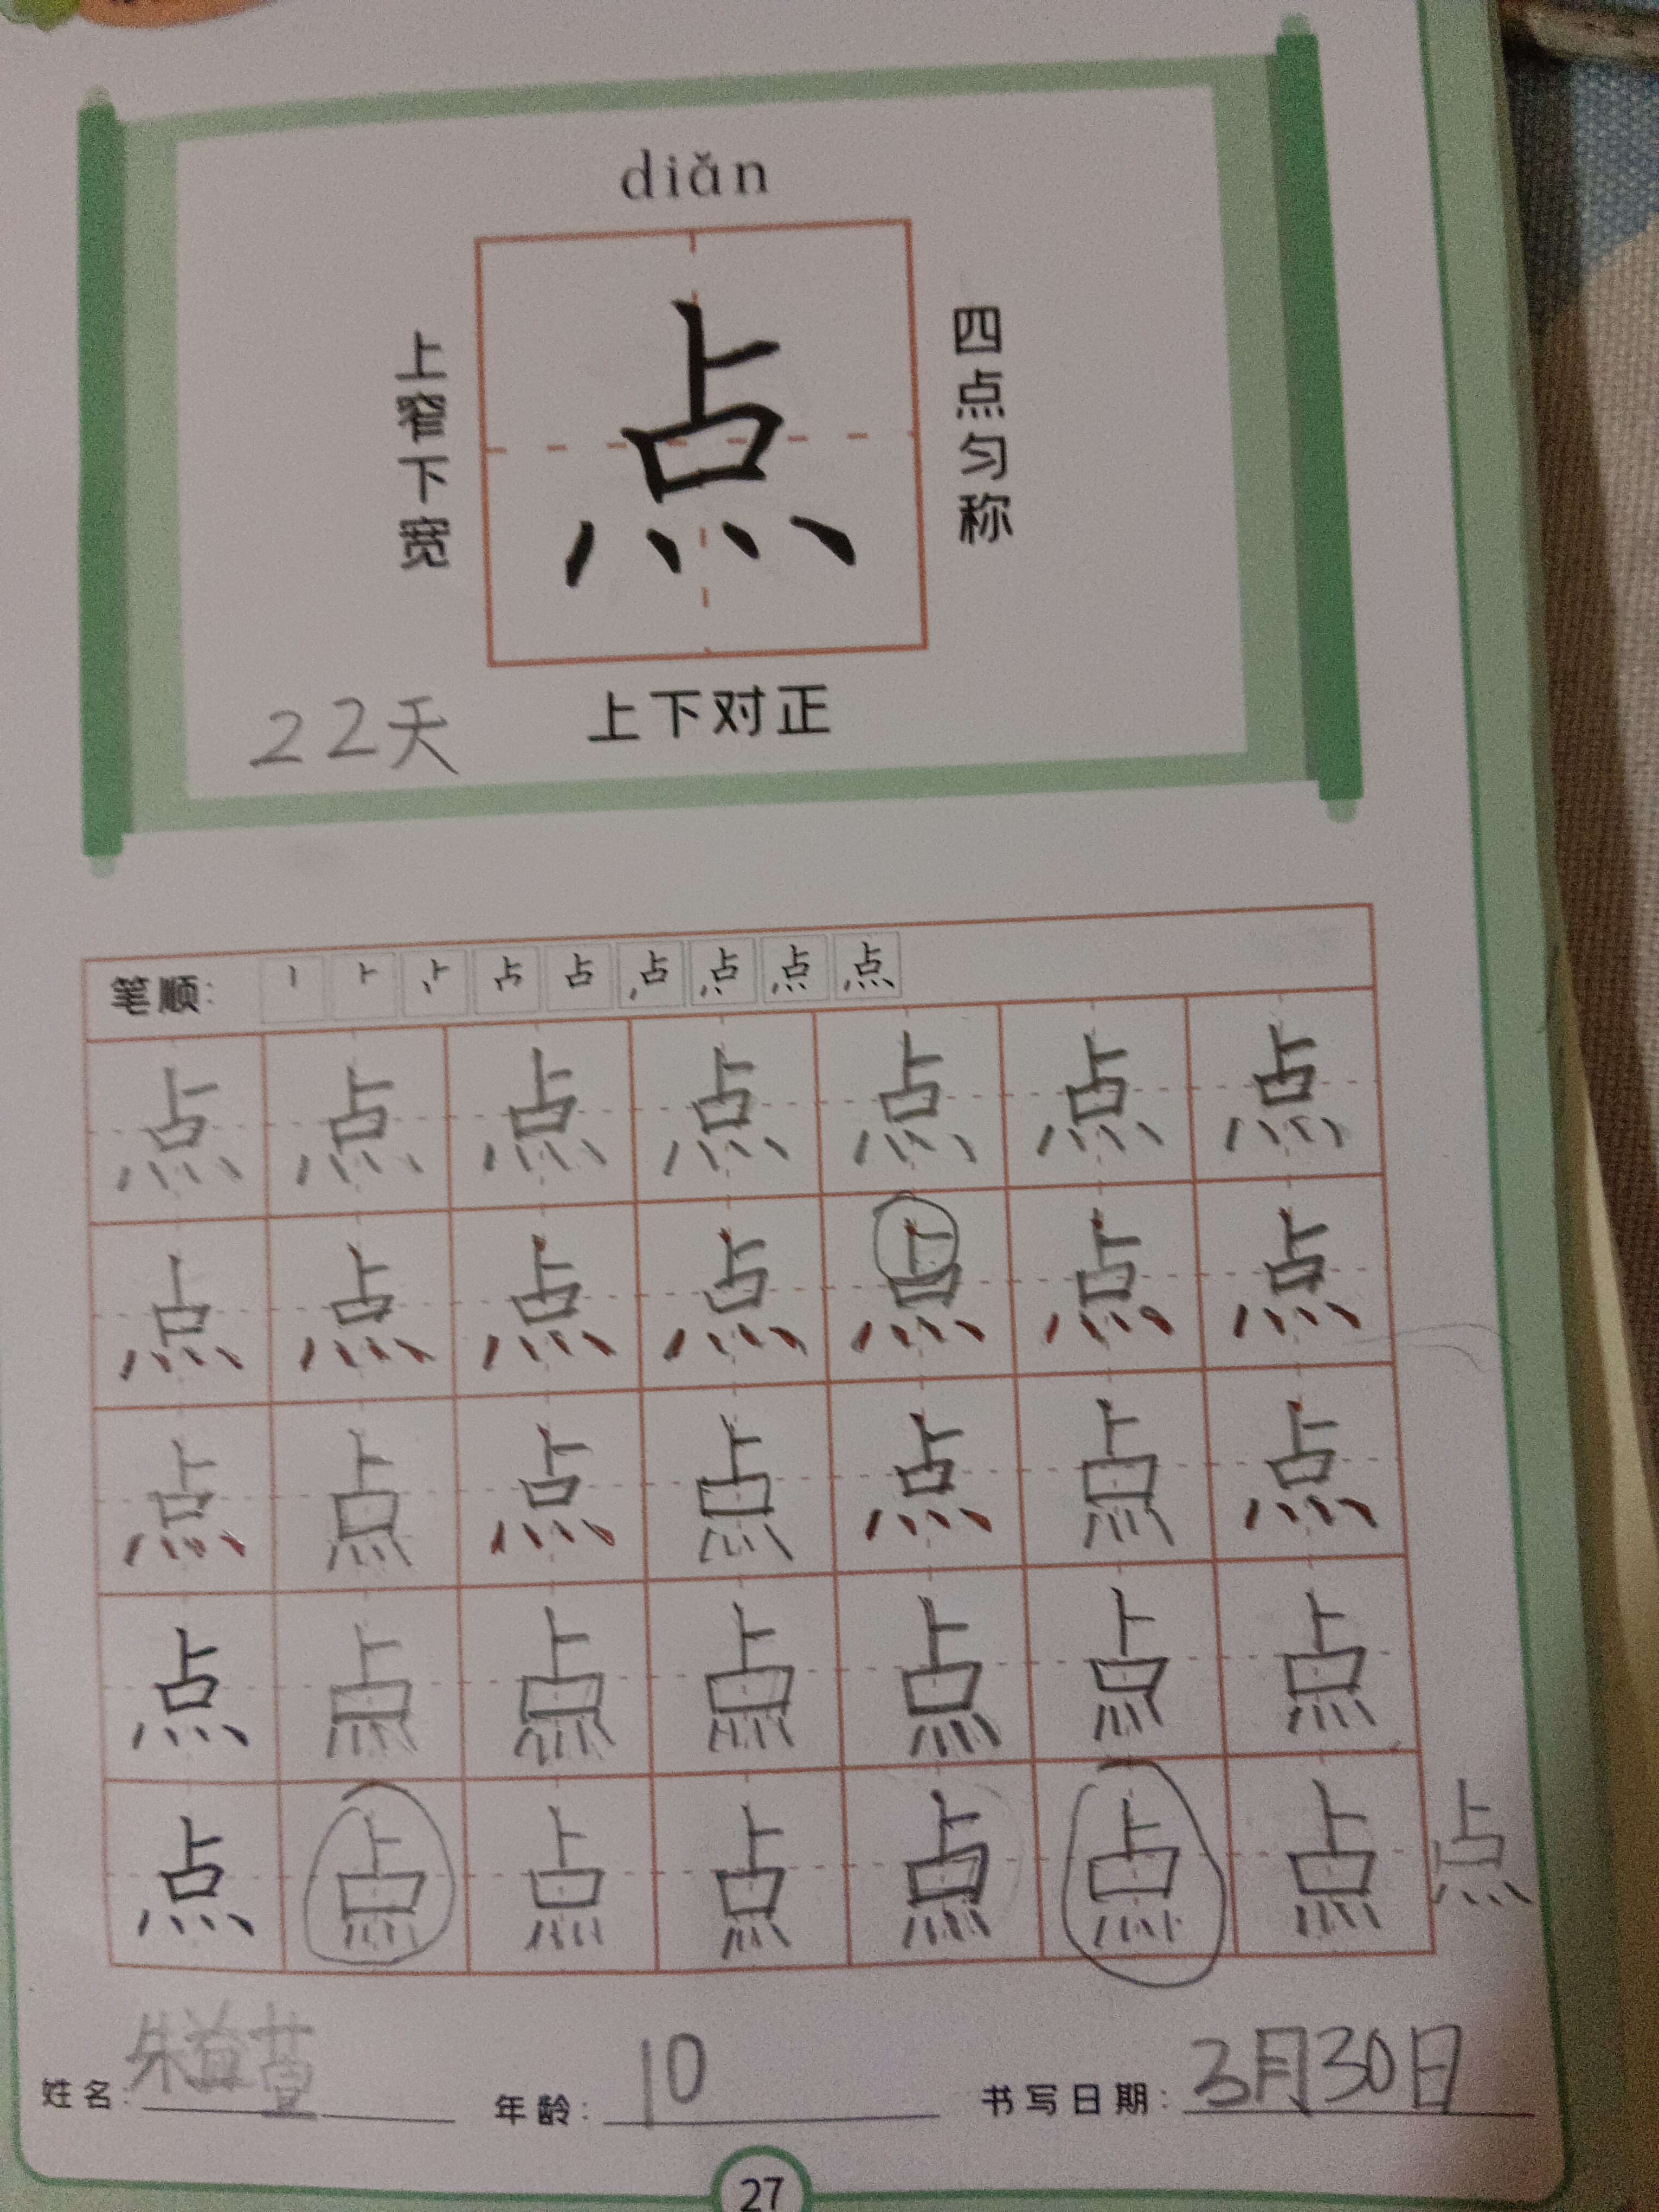 diǎn
上窄下宽
点
四点匀称
上下对正
22天
笔顺:
点 点 点 点 点 点 点
点 点 点 点 点 点 点
点 点 点 点 点 点 点
点 点 点 点 点 点 点
点 点 点 点 点 点 点 点
姓名: 朱益萱 年龄: 10 书写日期: 3月30日
27